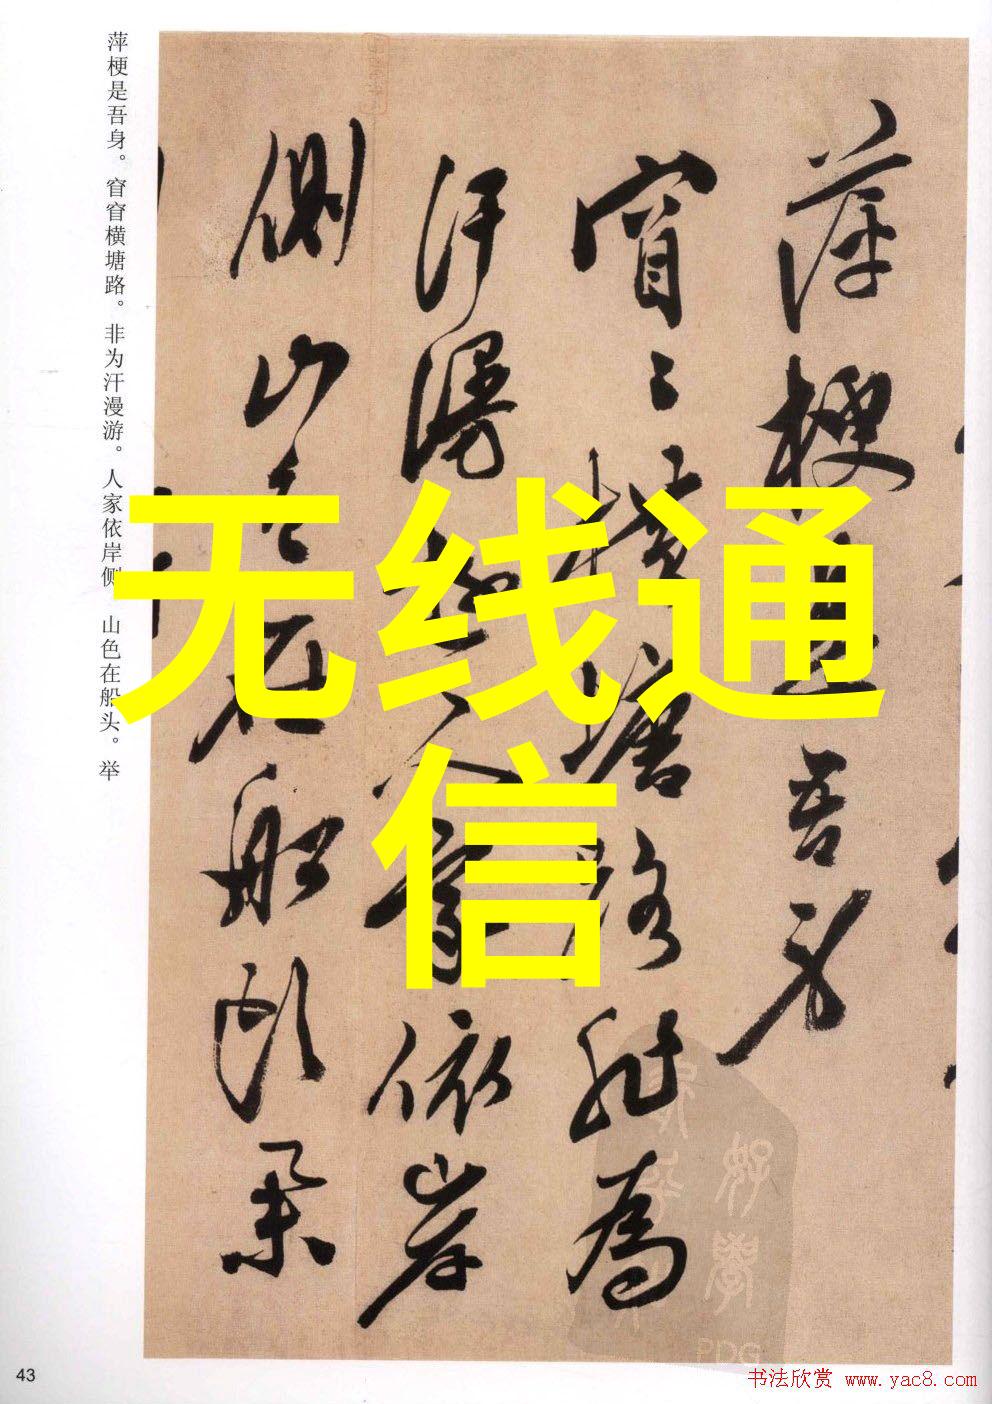 萍梗是吾身
窅〻橫塘路非為
汗漫游人家依岸
側山色在船頭
萍梗是吾身。窅窅横塘路。非为汗漫游。人家依岸侧 山色在船头。举
无线通
信
PDG
43
书法欣赏 www.yac8.com